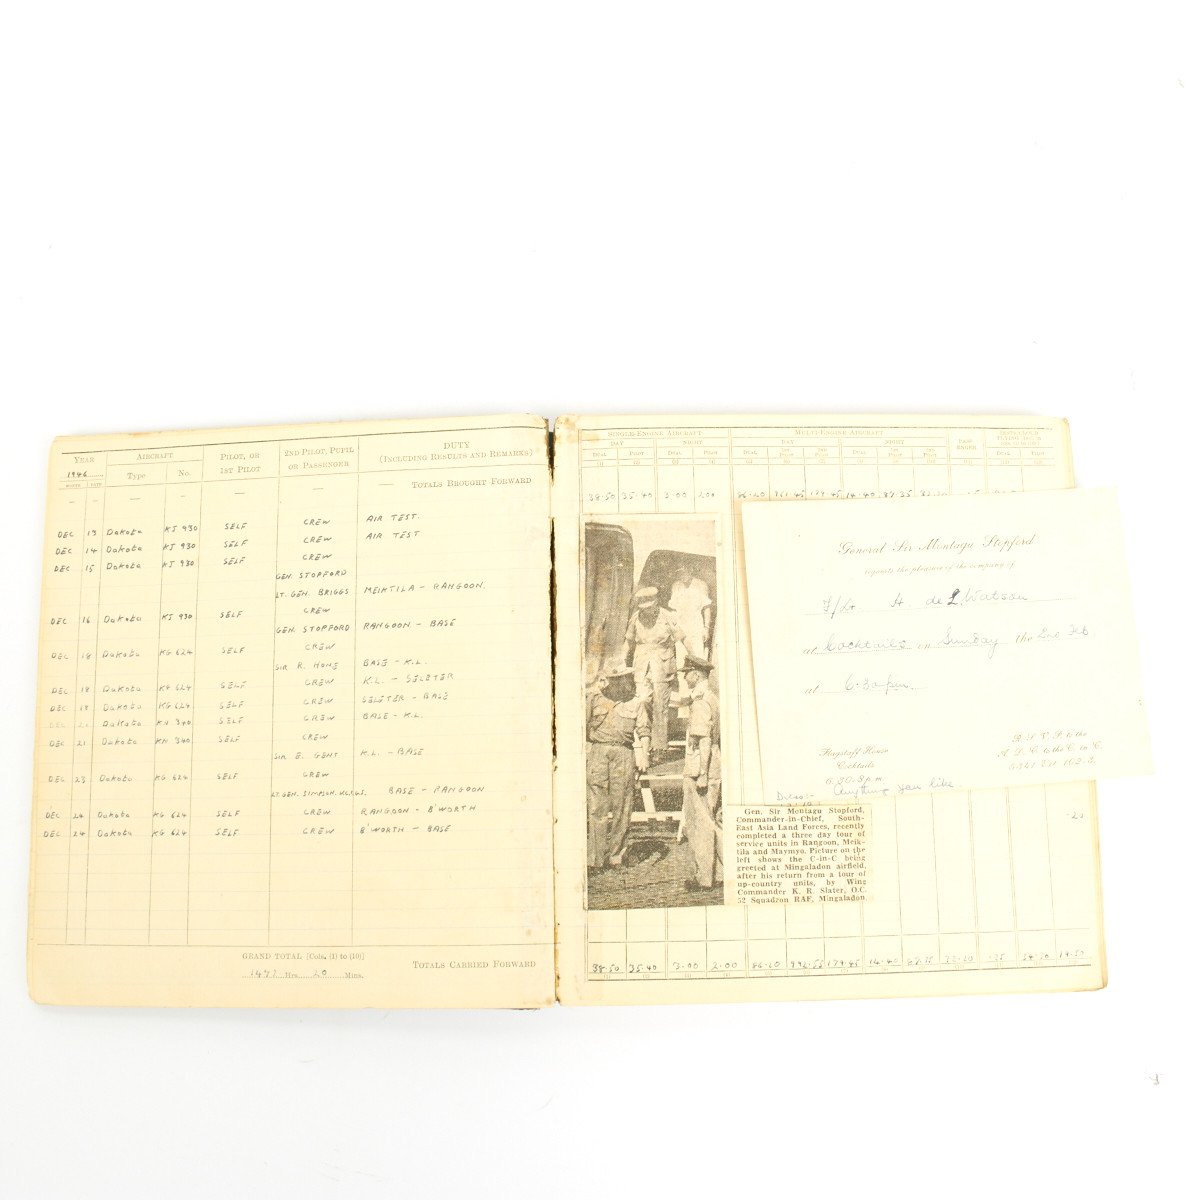 YEAR AIRCRAFT PILOT, OR 2ND PILOT, PUPIL DUTY
1946 Type No. 1ST PILOT OR PASSENGER (INCLUDING RESULTS AND REMARKS)
MONTH DATE
— — — — — — — TOTALS BROUGHT FORWARD
DEC 13 Dakota KJ 930 SELF CREW AIR TEST.
DEC 14 Dakota KJ 930 SELF CREW AIR TEST
DEC 15 Dakota KJ 930 SELF CREW
GEN. STOPFORD
LT. GEN. BRIGGS MEIKTILA - RANGOON.
DEC 16 Dakota KJ 930 SELF CREW
GEN. STOPFORD RANGOON - BASE
DEC 18 Dakota KG 624 SELF CREW
SIR R. HONE BASE - K.L.
DEC 18 Dakota KG 624 SELF CREW K.L. - SELETER
DEC 18 Dakota KG 624 SELF CREW SELETER - BASE
Dakota KN 340 SELF CREW BASE - K.L.
DEC 21 Dakota KN 340 SELF CREW
SIR E. GENT K.L. - BASE
DEC 23 Dakota KG 624 SELF CREW
LT. GEN. SIMPSON BASE - RANGOON
DEC 24 Dakota KG 624 SELF CREW RANGOON - B'WORTH
DEC 24 Dakota KG 624 SELF CREW B'WORTH - BASE
GRAND TOTAL [Cols. (1) to (10)]
1471 Hrs. 20 Mins.
TOTALS CARRIED FORWARD
SINGLE-ENGINE AIRCRAFT MULTI-ENGINE AIRCRAFT
DAY NIGHT DAY NIGHT
DUAL PILOT DUAL PILOT DUAL 1ST PILOT 2ND PILOT DUAL 1ST PILOT 2ND PILOT DUAL PILOT
38.50 35.40 3.00 2.00
General Sir Montagu Stopford
requests the pleasure of the company of
F/Lt H. de L. Watson
at Cocktails on Sunday the 2nd Feb
at 6.30pm
Flagstaff House
Cocktails
6.30-8 p.m.
R.S.V.P. to the
A.D.C. to the C. in C.
Dress:- Anything you like.
Gen. Sir Montagu Stopford,
Commander-in-Chief, South-
East Asia Land Forces, recently
completed a three day tour of
service units in Rangoon, Meik-
tila and Maymyo. Picture on the
left shows the C-in-C being
greeted at Mingaladon airfield,
after his return from a tour of
up-country units, by Wing
Commander K. R. Slater, O.C.
52 Squadron RAF, Mingaladon.
.20
38.50 35.40 3.00 2.00 86.20 992.55 179.45 14.40